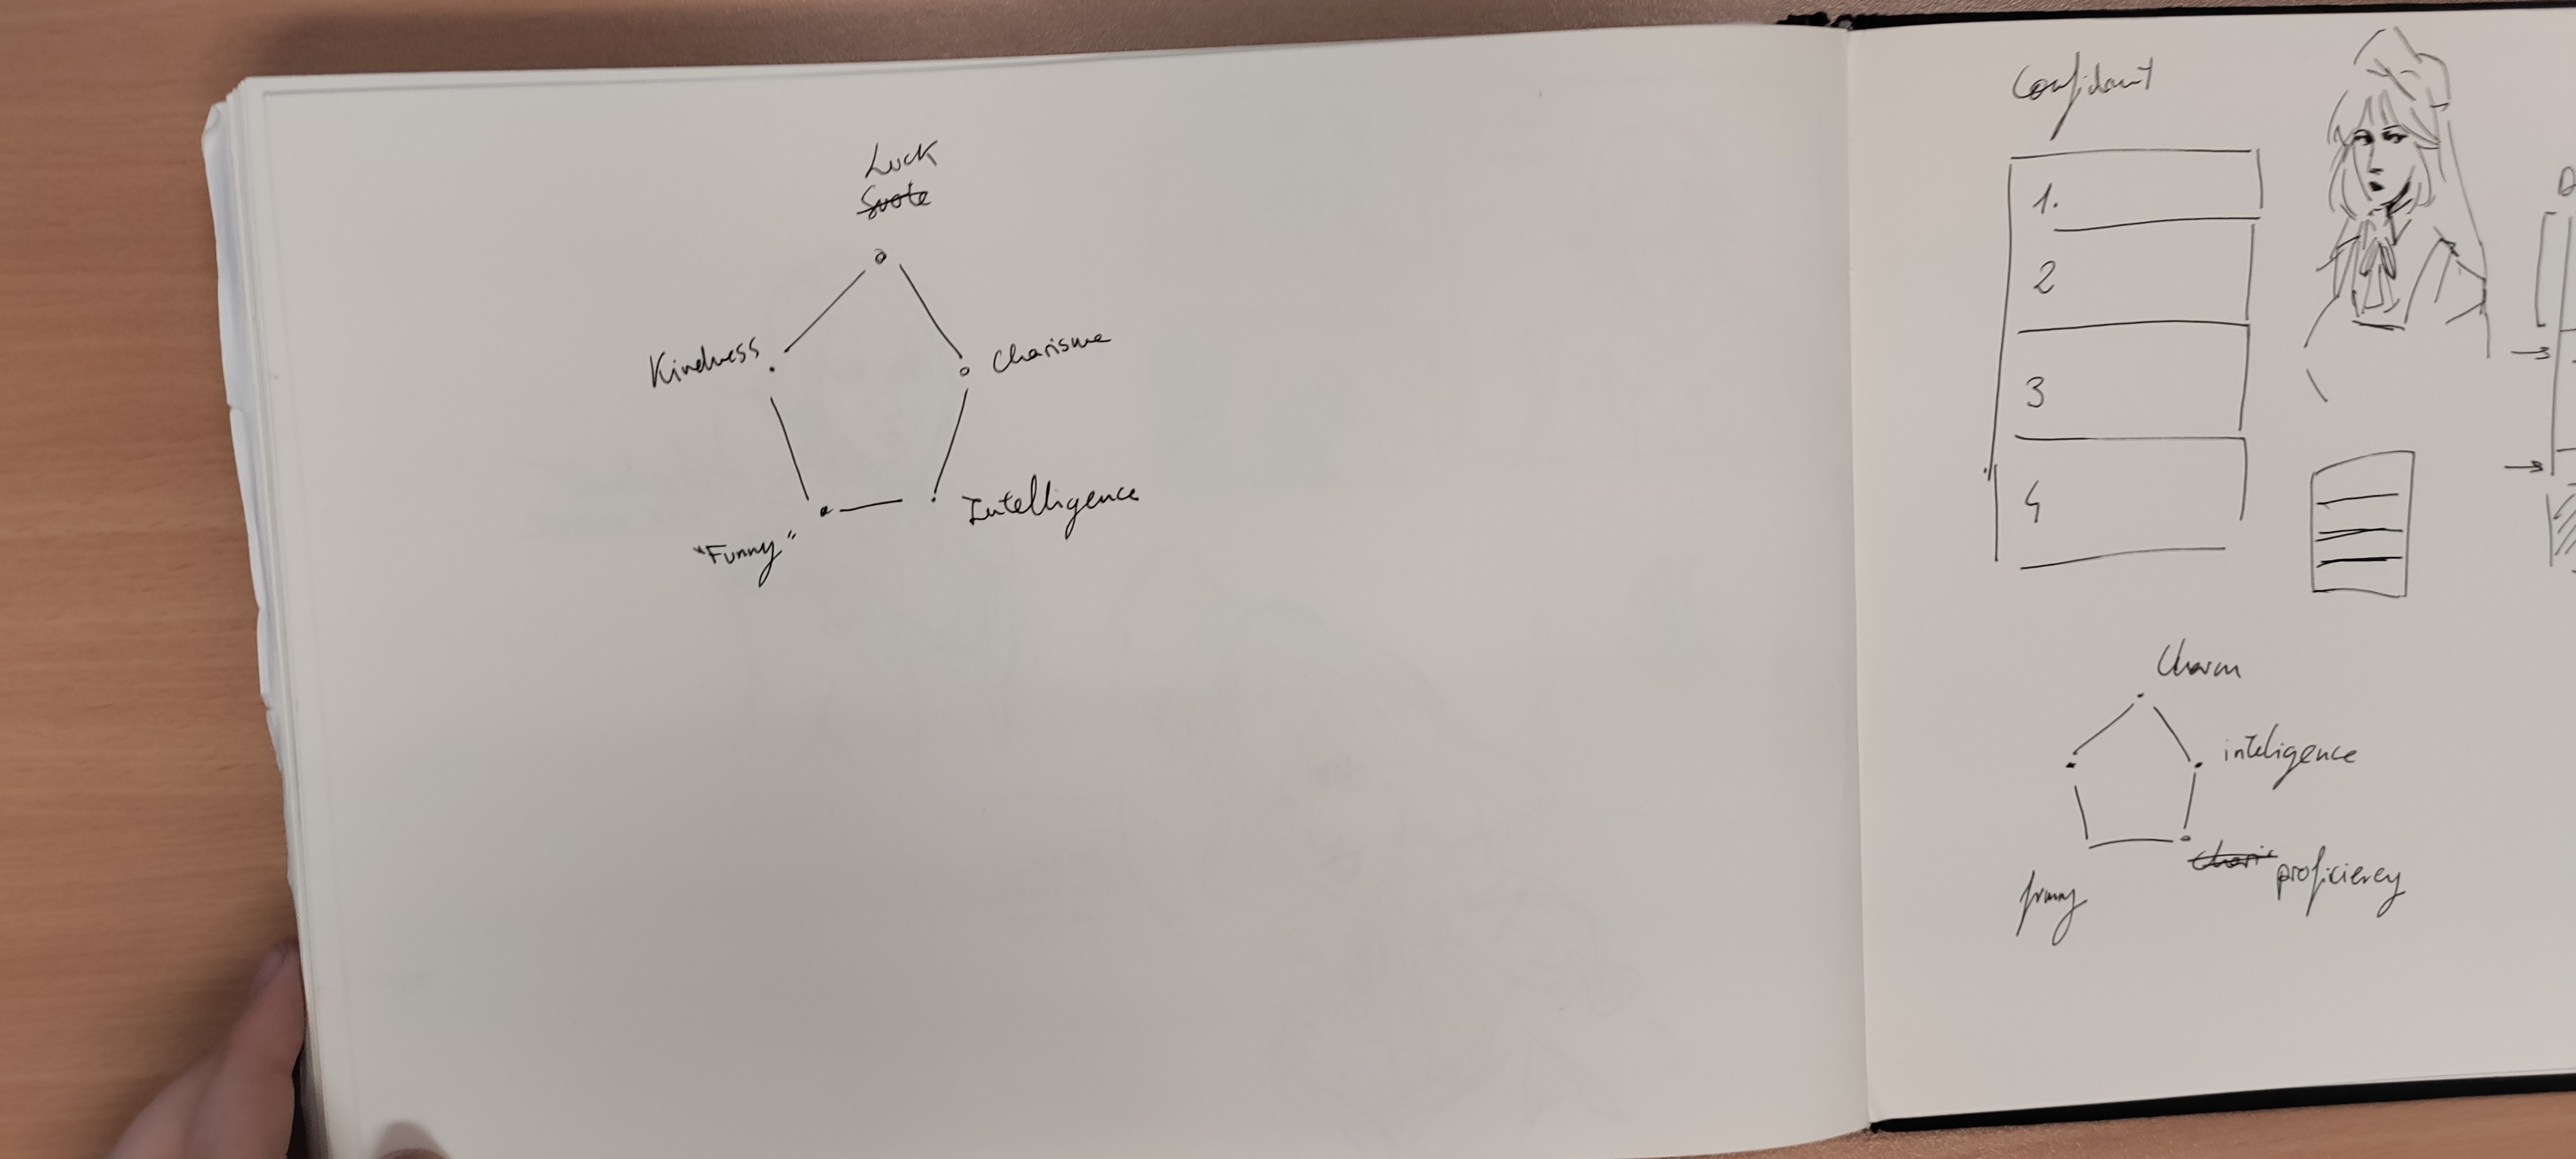 Luck
Kindness
Charisme
"Funny"
Intelligence
Confidant
1.
2
3
4
Charm
inteligence
Chari proficiency
funny